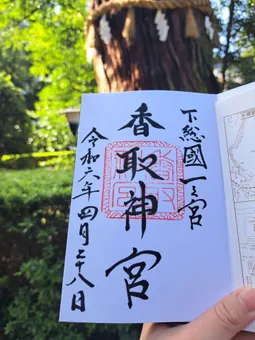 下総國一之宮
香取神宮
令和六年四月二十八日